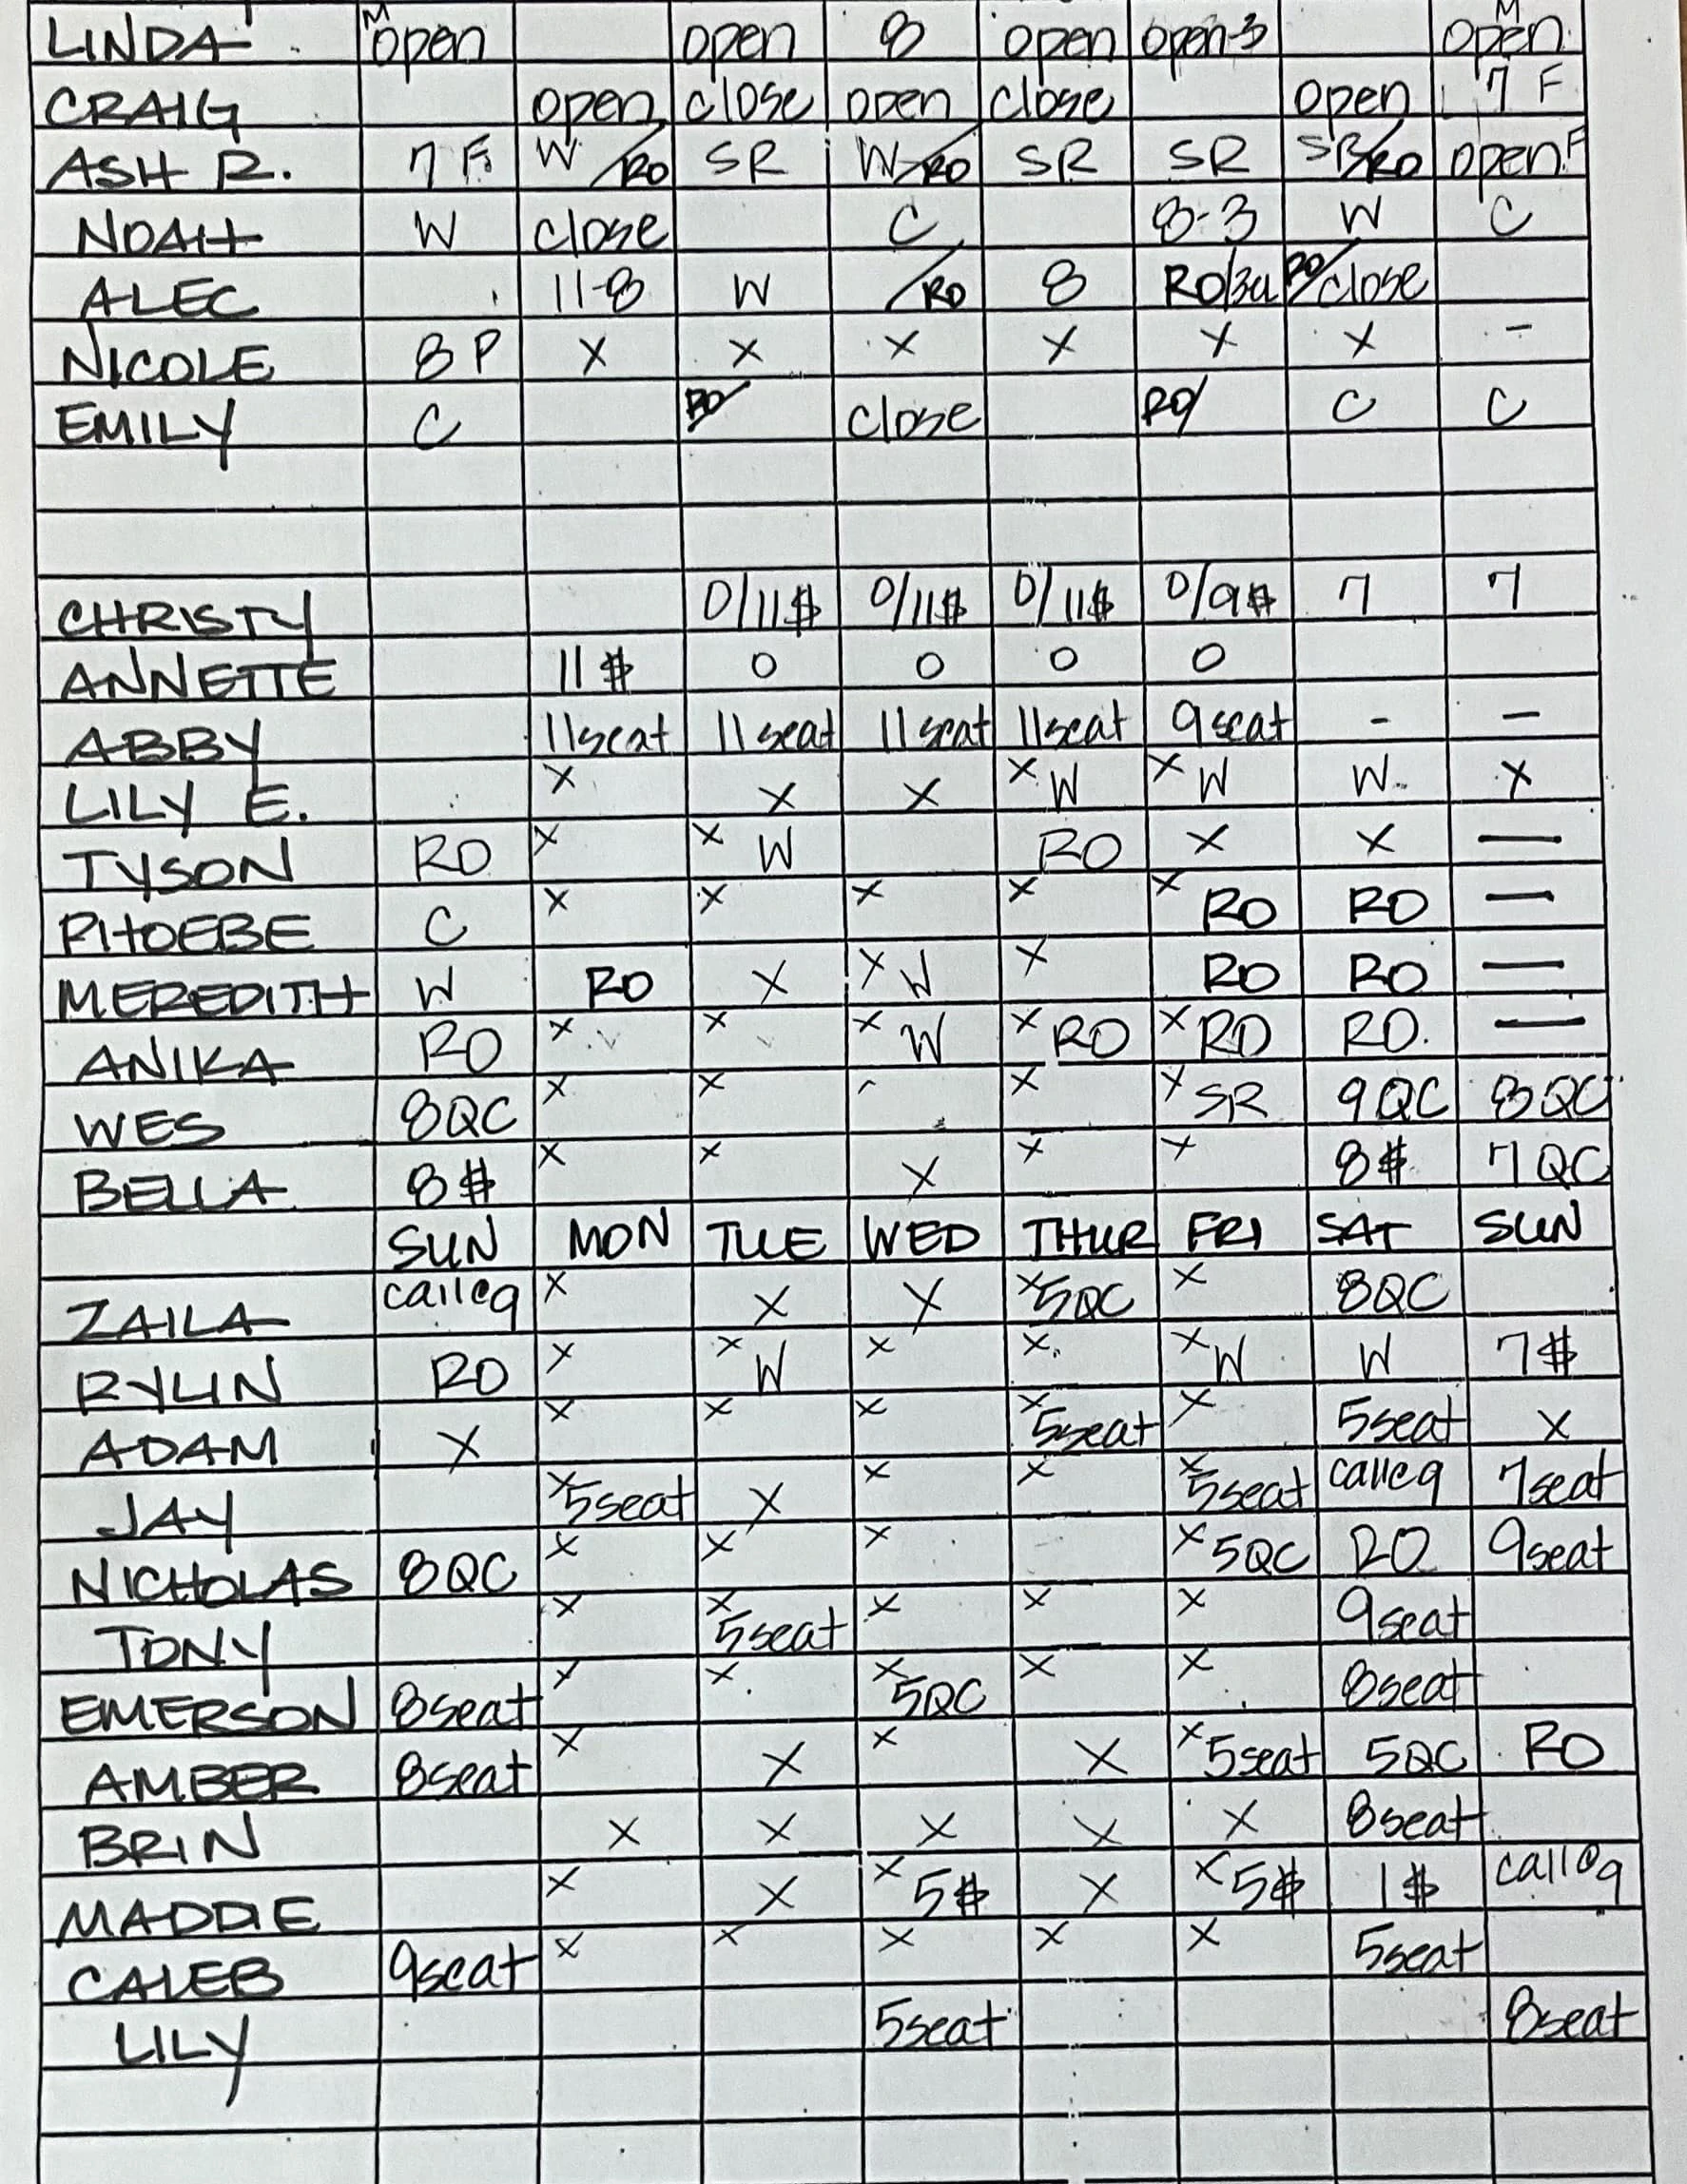 LINDA M open open 8 open open-3 M open
CRAIG open close open close open 7 F
ASH R. 7 F W/RO SR W/RO SR SR SR/RO open F
NOAH W close C 8-3 W C
ALEC 11-8 W /RO 8 RO/ RO/close
NICOLE 8 P X X X X X X -
EMILY C RO/ close RO/ C C
CHRISTY 0/11$ 0/11$ 0/11$ 0/9$ 7 7
ANNETTE 11$ 0 0 0 0
ABBY 11seat 11seat 11seat 11seat 9seat - -
LILY E. X X X X W X W W X
TYSON RO X X W RO X X —
PHOEBE C X X X X X RO RO —
MEREDITH W RO X X W X RO RO —
ANIKA RO X X X W X RO X RO RO —
WES 8QC X X X X SR 9QC 8QC
BELLA 8$ X X X X X 8$ 7QC
SUN MON TUE WED THUR FRI SAT SUN
ZAILA calle9 X X X X 5QC X 8QC
RYLIN RO X X W X X X W W 7$
ADAM X X X X X 5seat X 5seat X
JAY X 5seat X X X X 5seat calle9 7seat
NICHOLAS 8QC X X X X 5QC RO 9seat
TONY X X 5seat X X X 9seat
EMERSON 8seat X X X 5QC X X 8seat
AMBER 8seat X X X X X 5seat 5QC RO
BRIN X X X X X 8seat
MADDIE X X X 5$ X X 5$ 1$ call@9
CALEB 9seat X X X X X 5seat
LILY 5seat 8seat